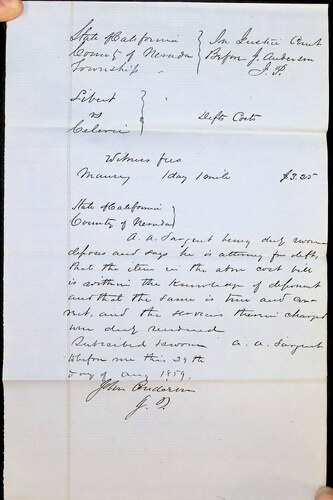 State of California } In Justice Court
County of Nevada } Before J. Anderson
Township " J. P.
Sibert }
vs } Defts Costs
Witness fees
Maurey 1 day 1 mile $3.25
State of California }
County of Nevada }
A. A. Sargent being duly sworn
deposes and says he is attorney for deft,
that the items in the above cost bill
is within the Knowledge of deponent
and that the same is true and cor-
rect, and the services therein charged
were duly rendered
Subscribed & sworn A. A. Sargent
to before me this 29th
day of Aug 1859.
John Anderson
J. P.